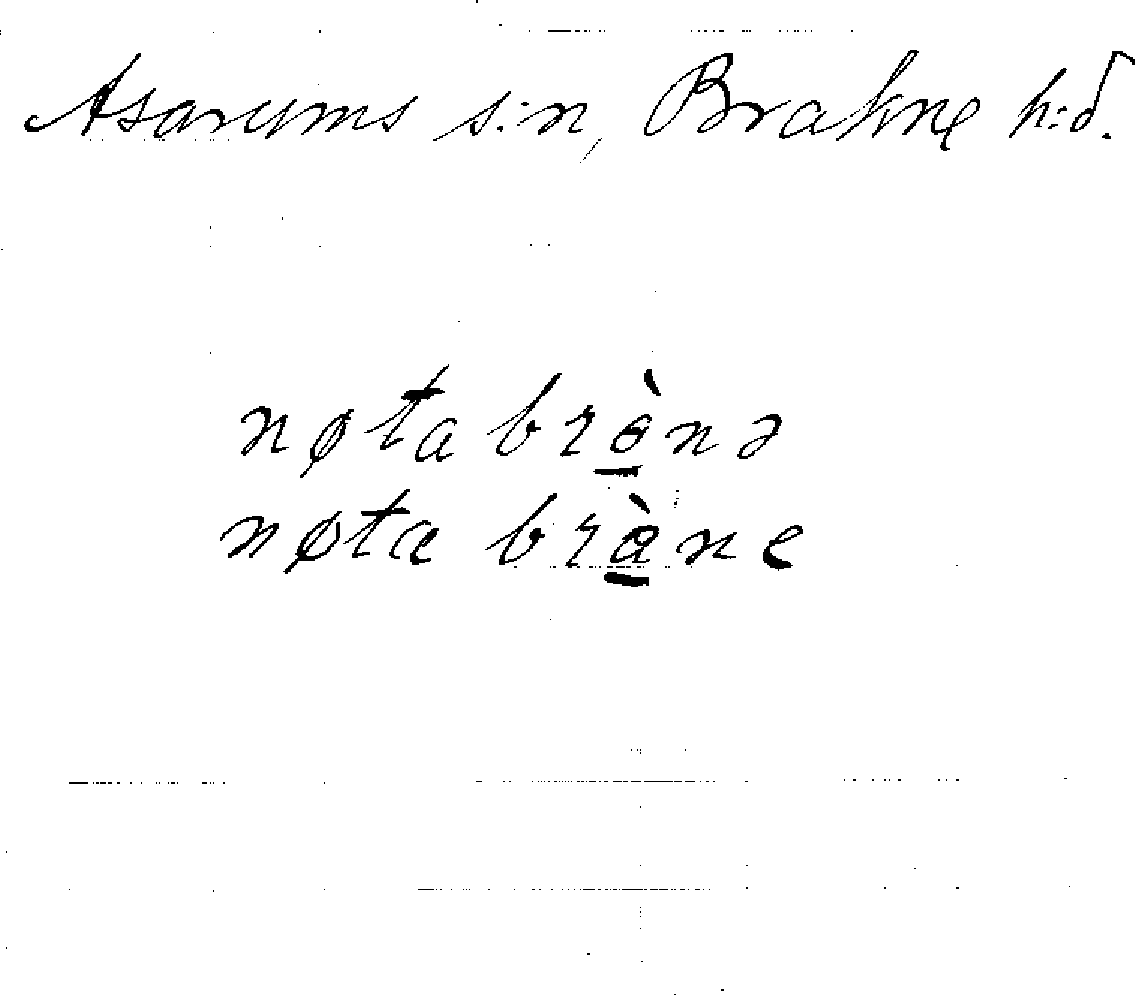 Asarums s:n, Brakne h:d.
nøta brànə
nøta bràne